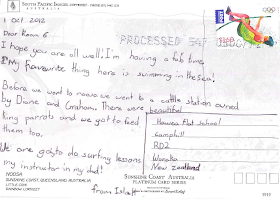 SOUTH PACIFIC IMAGES
AUSTRALIA
1 Oct 2012
Dear Room 6
PROCESSED
I hope you are all well! I'm having a fab time.
My favourite thing here is swimming in the Sea!
Before we used to noosa we went to a cattle station owned
by Diane and Graham. There were beautiful
king parrots and we got to feed
them too.
We are going to do surfing lessons
my instructor is my dad!
from Isla
Hawea Flat School
Camphill
RD2
Wanaka
New Zealand
NOOSA
SUNSHINE COAST, QUEENSLAND AUSTRALIA
LITTLE COVE
RAINBOW LORIKEET
SUNSHINE COAST AUSTRALIA
PLATINUM CARD SERIES